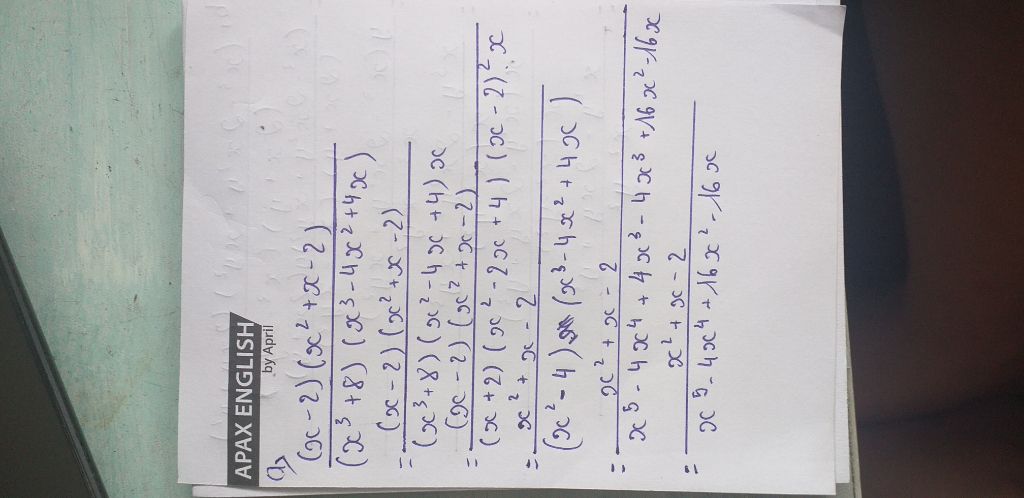 APAX ENGLISH
by April
a,
(x-2)(x²+x-2)
(x³+8)(x³-4x²+4x)
= (x-2)(x²+x-2)
(x³+8)(x²-4x+4)x
= (x-2)(x²+x-2)
(x+2)(x²-2x+4)(x-2)²x
= x²+x-2
(x²-4)(x³-4x²+4x)
= x²+x-2
x⁵-4x⁴+4x³-4x³+16x²-16x
= x²+x-2
x⁵-4x⁴+16x²-16x